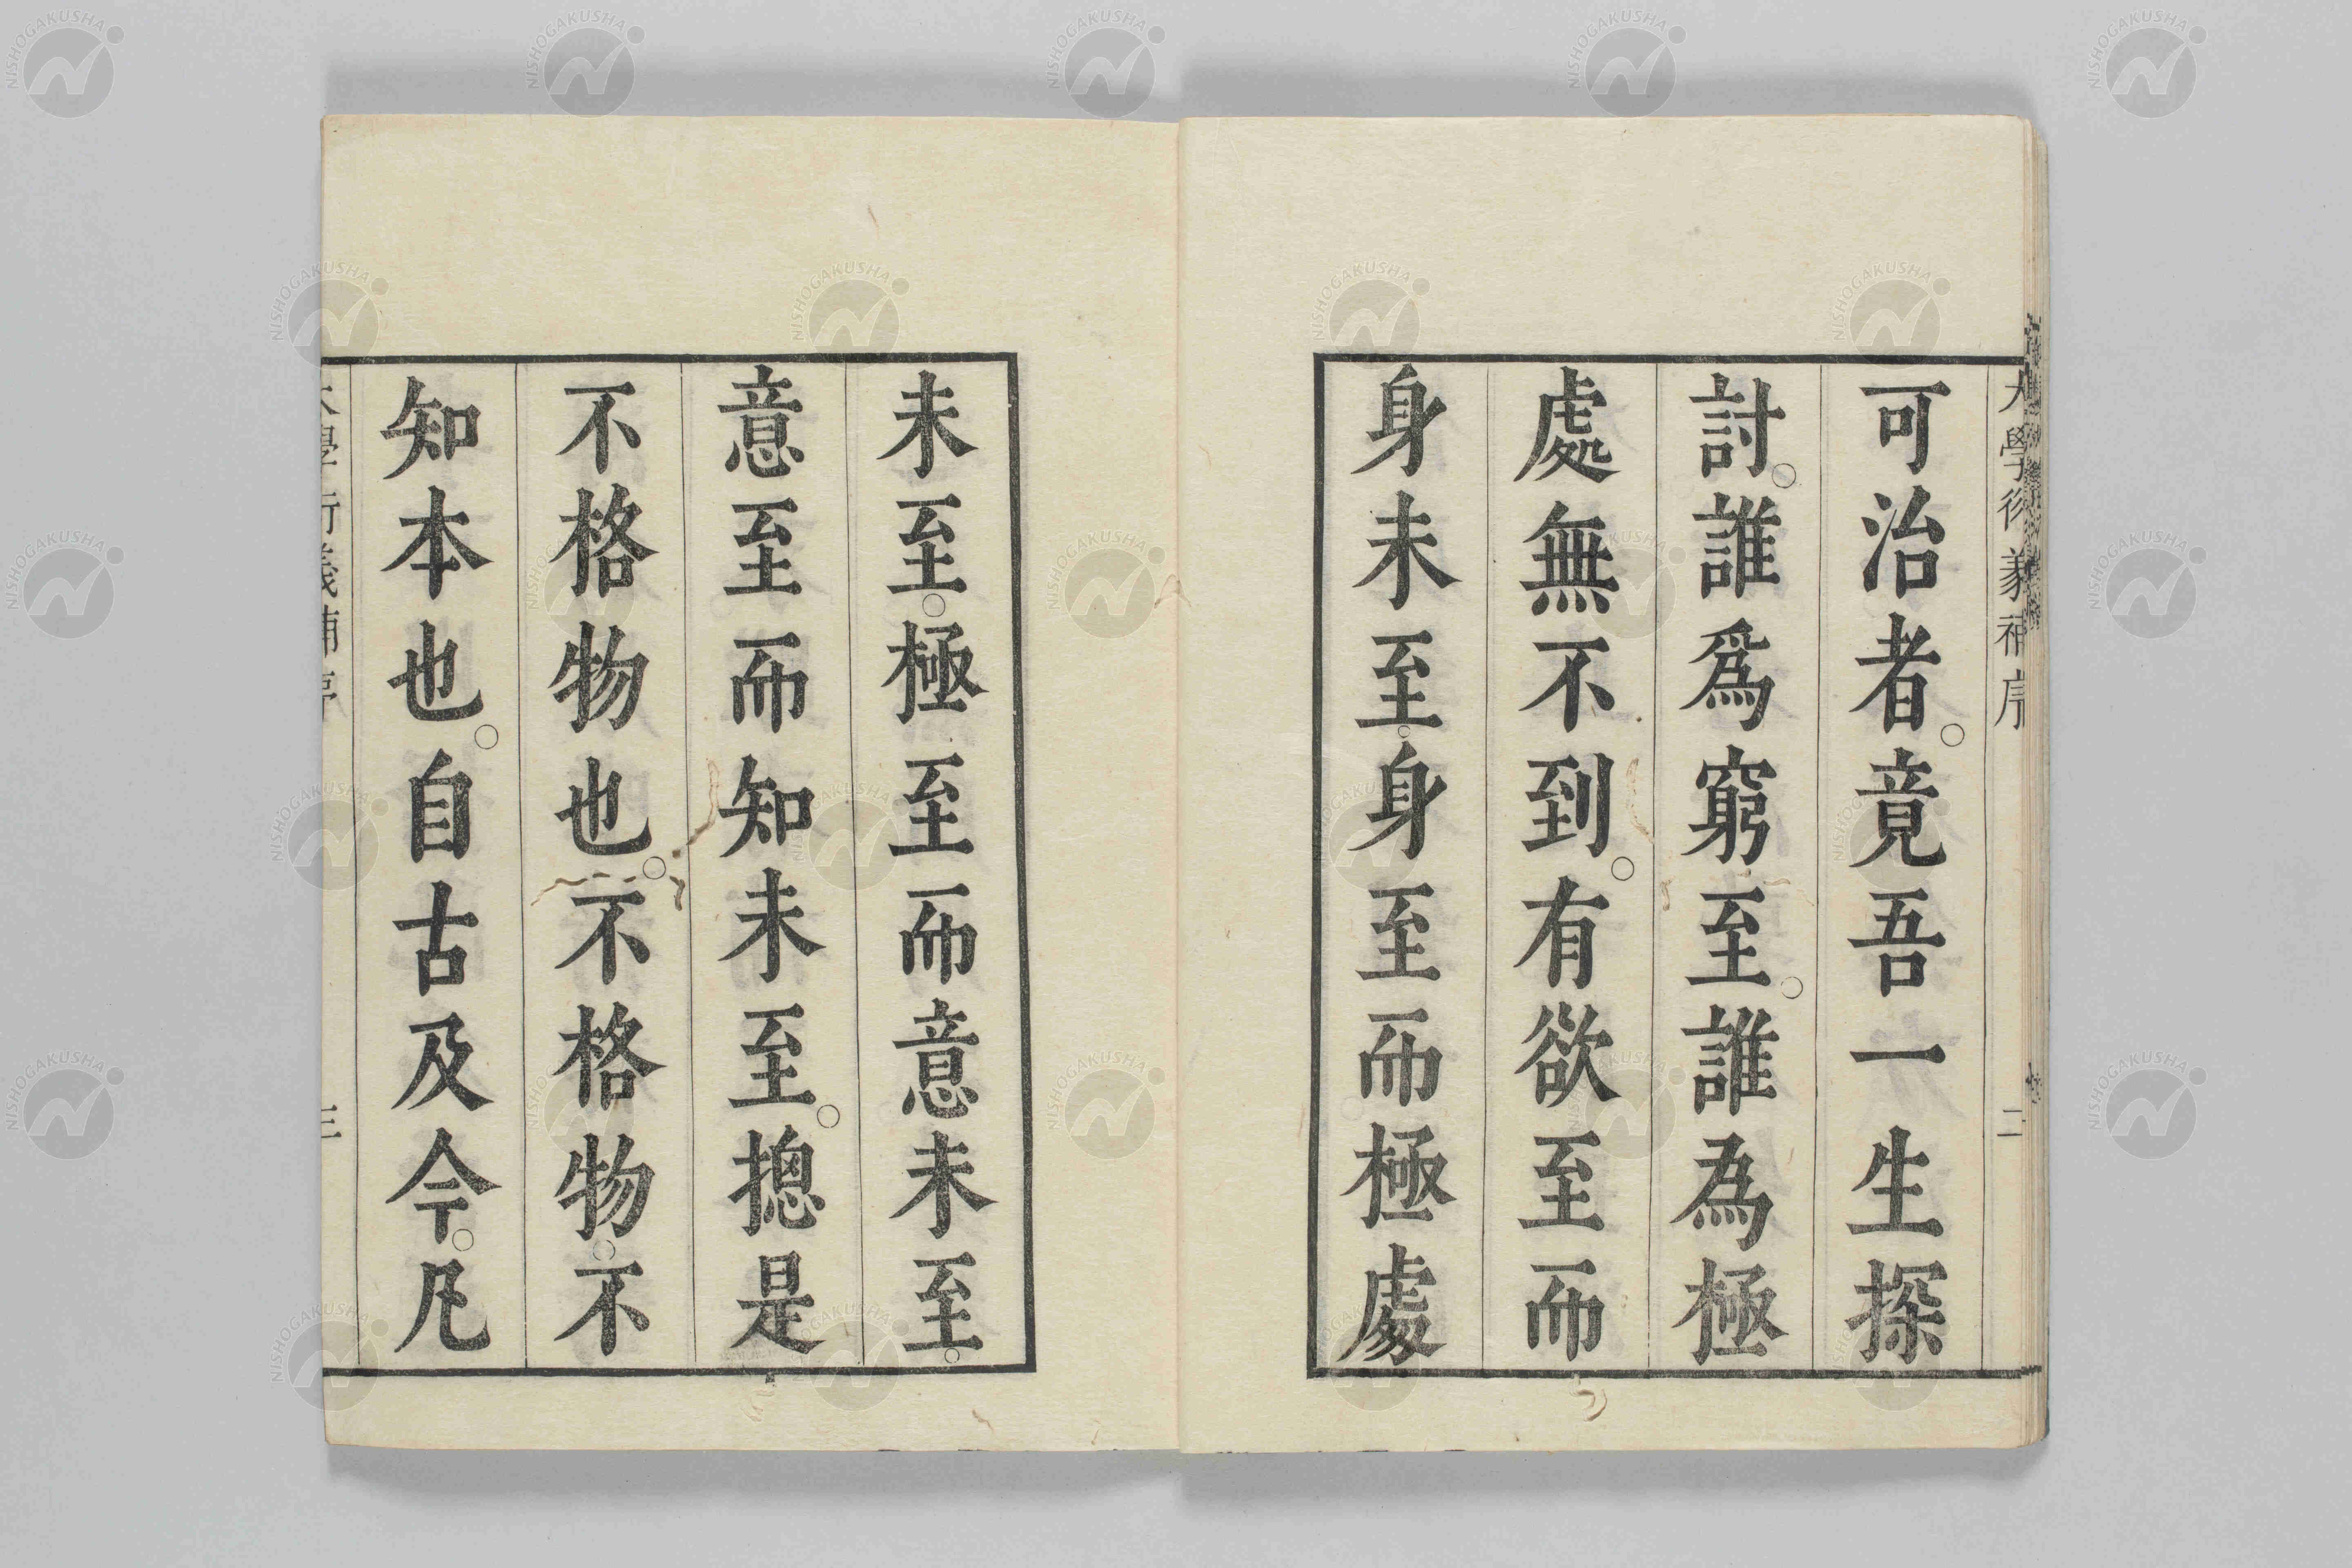 可治者。竟吾一生探
討。誰爲窮至。誰為極
處無不到。有欲至而
身未至。身至而極處
未至。極至而意未至。
意至而知未至。摠是
不格物也。不格物。不
知本也。自古及今。凡
二
三
NISHOGAKUSHA